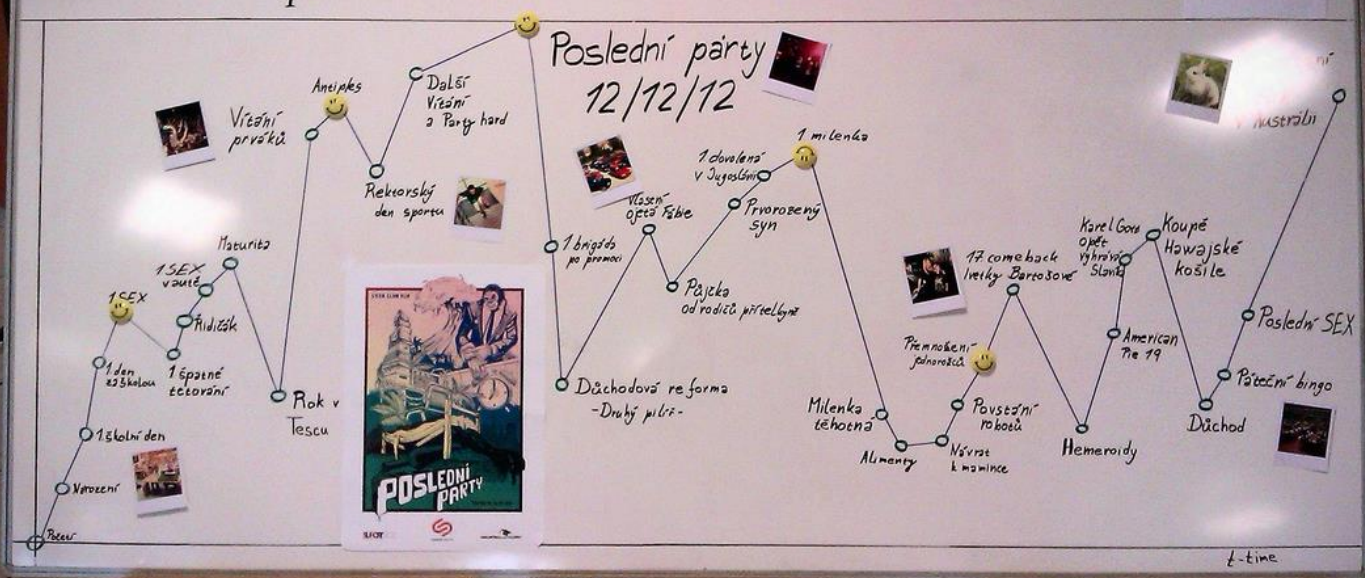 Poslední párty
12/12/12
Početí
Narození
1.školní den
1 den
za školou
1 SEX
1 špatné
tetování
Řidičák
1 SEX
v autě
Maturita
Rok v
Tescu
Vítání
prváků
Antiples
Rektorský
den sportu
Další
Vítání
a Party hard
1 brigáda
po promoci
Důchodová reforma
-Druhý pilíř-
Vlastní
ojetá Fabie
Půjčka
od rodičů přítelkyně
Prvorozený
syn
1 dovolená
v Jugoslávii
1 milenka
Milenka
těhotná
Alimenty
Návrat
k mamince
Povstání
robotů
Přemnožení
jednorožců
17 comeback
Ivetky Bartošové
Hemeroidy
American
Pie 19
Karel Gott
opět
vyhrává
Slavíka
Koupě
Hawajské
košile
Důchod
Páteční bingo
Poslední SEX
v Austrálii
t-time
POSLEDNÍ
PARTY